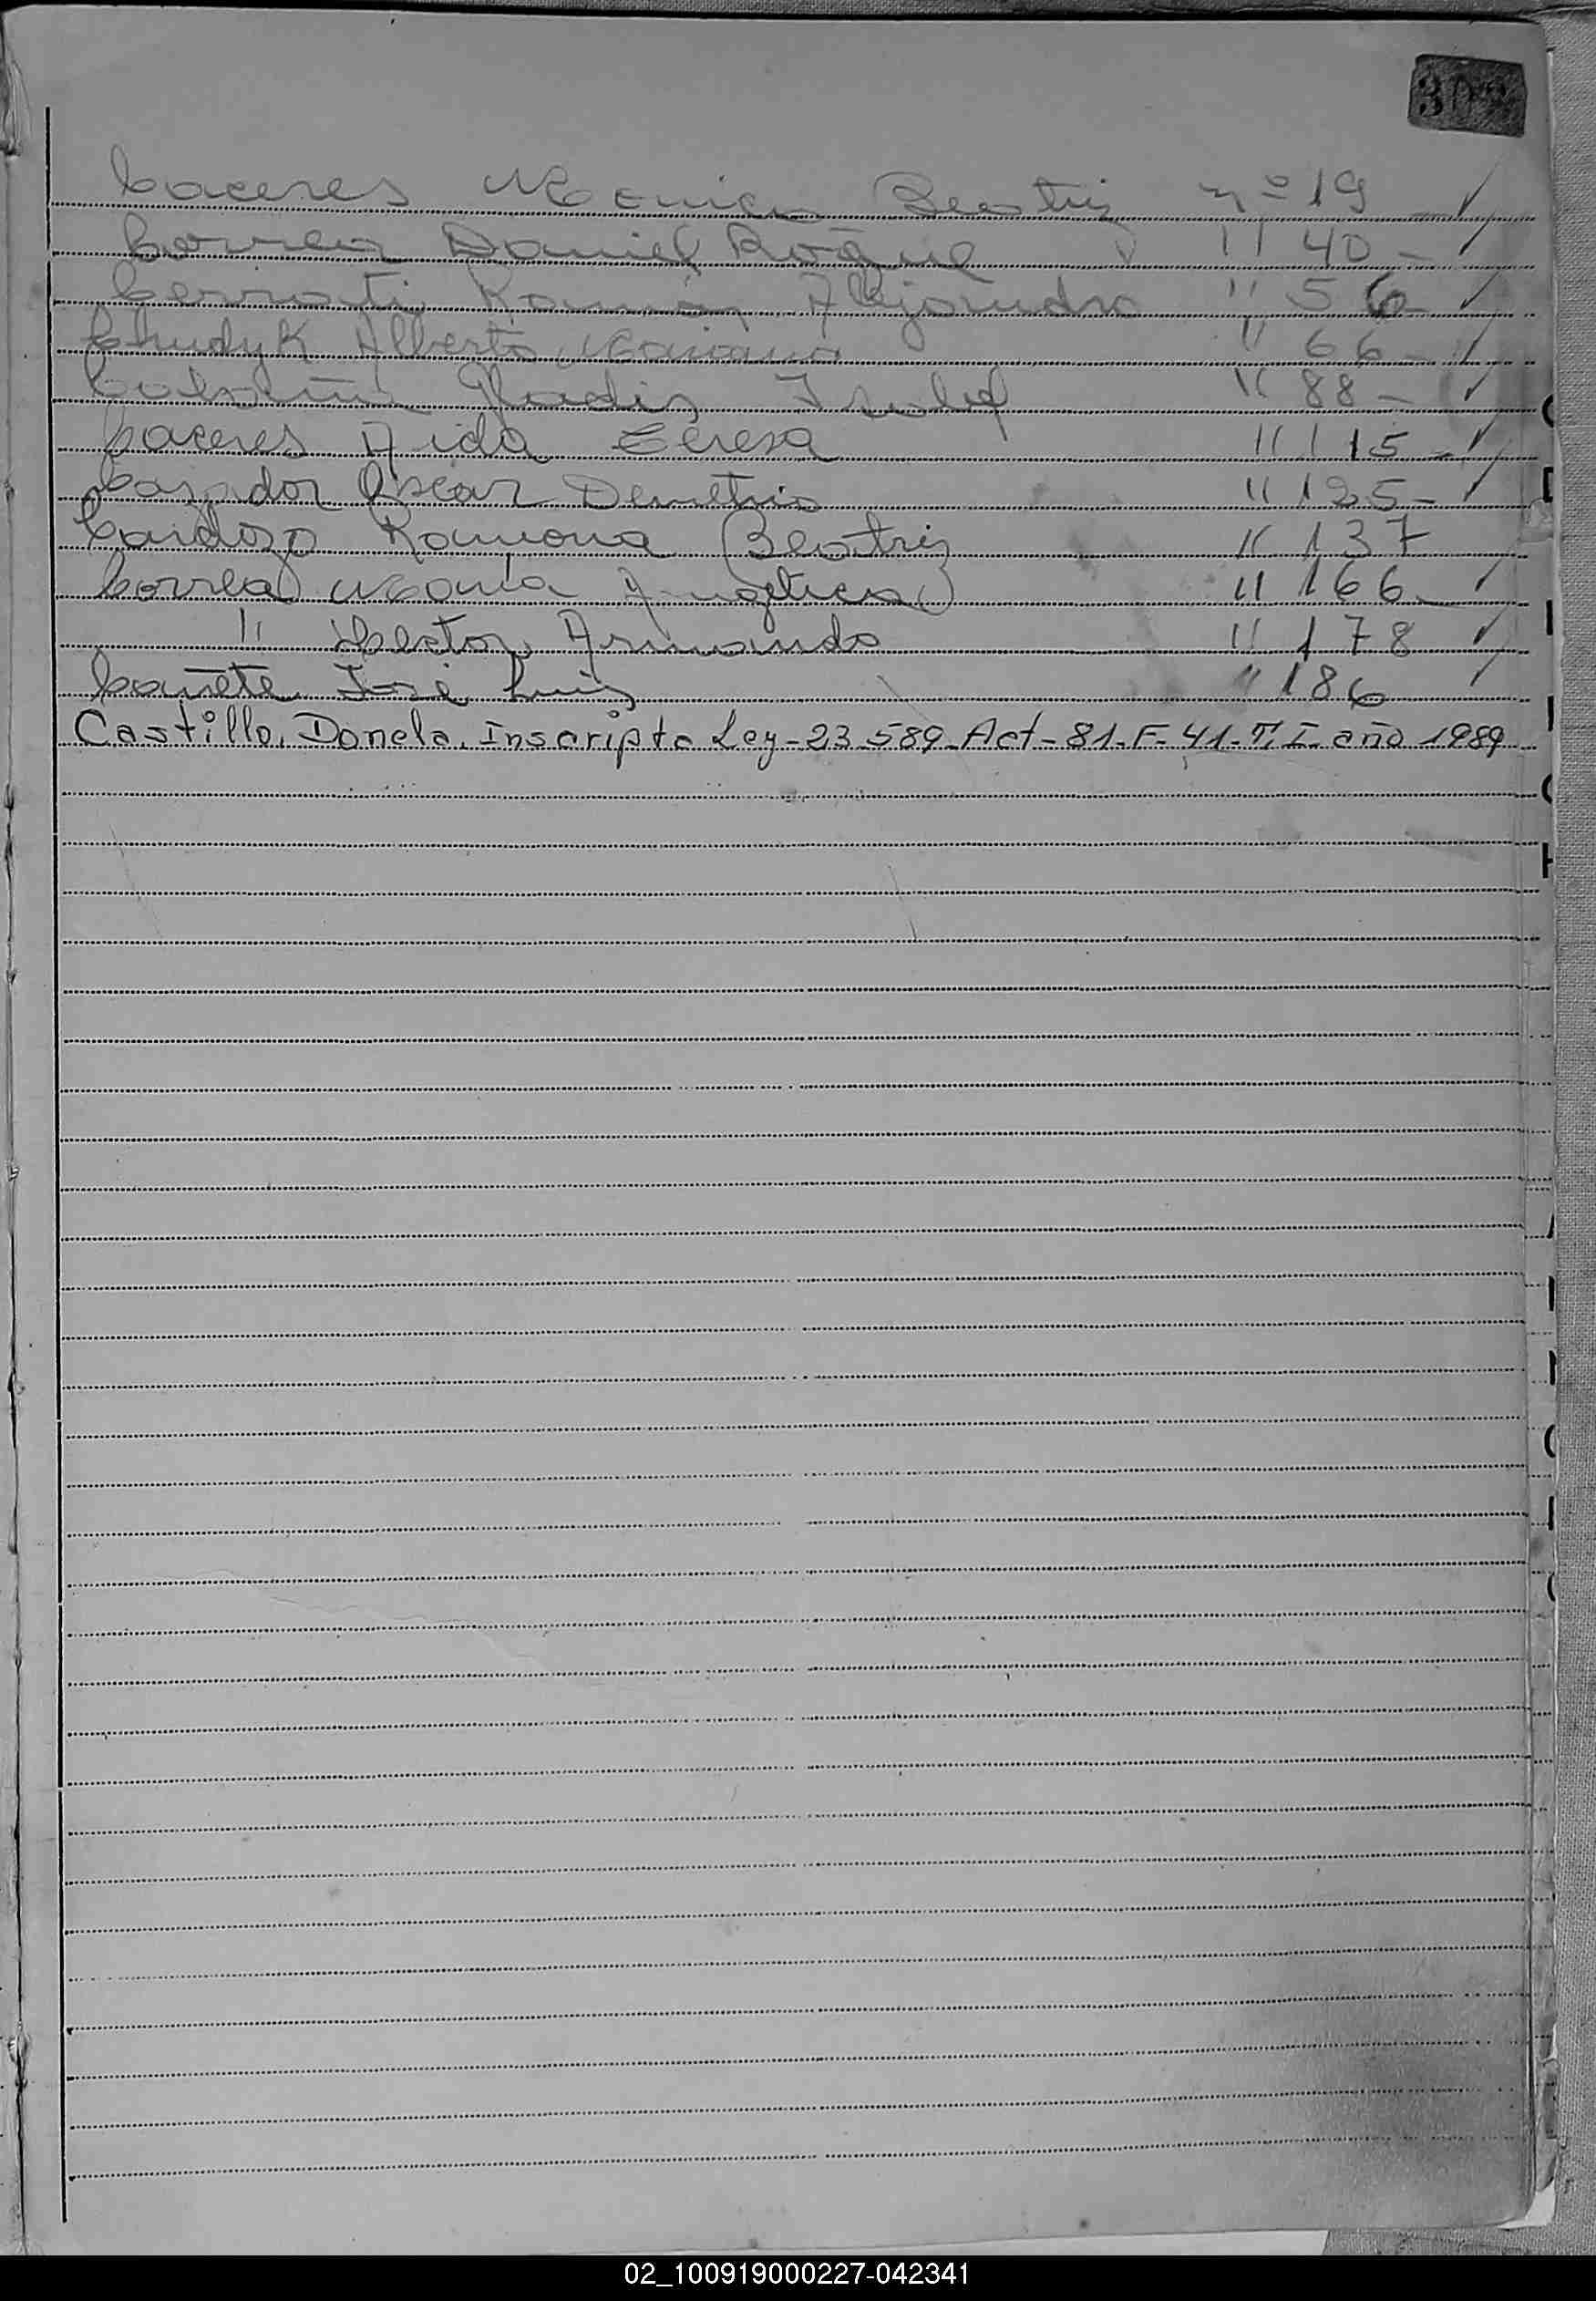 Caceres Monica Beatriz nº 19
Correa Daniel Roque " 40 -
Cerrati Ramón Alejandro " 56 -
Chudyk Alberto Mariano " 66 -
Gladis Isabel " 88 -
Caceres Aida Teresa " 115 -
Cazador Oscar Demetrio " 125 -
Cardozo Ramona Beatriz " 137
Correa Maria Angelica " 166 -
" Hector Armando " 178
Cañete José Luis " 186
Castillo, Donela. Inscripta Ley - 23.589 - Act - 81 - F - 41 - T. I - año 1989
02_100919000227-042341